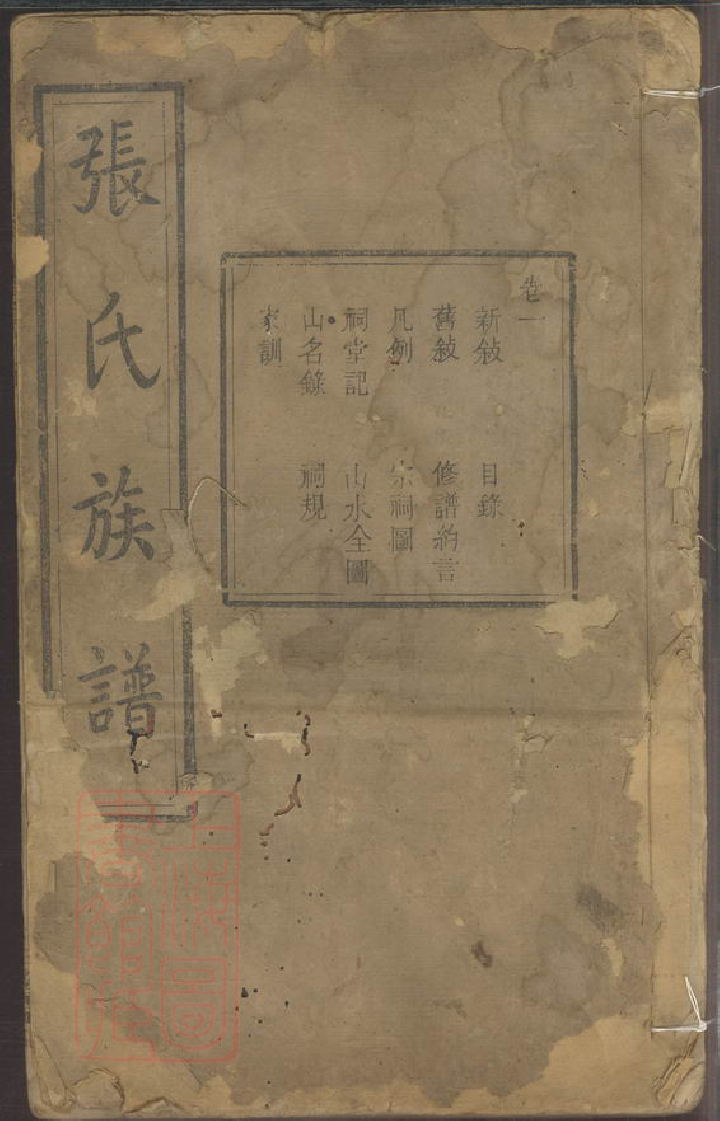 張氏族譜
卷一
新敍 目錄
舊敍 修譜約言
凡例 宗祠圖
祠堂記 山水全圖
山名錄 祠規
家訓
上海圖書館藏